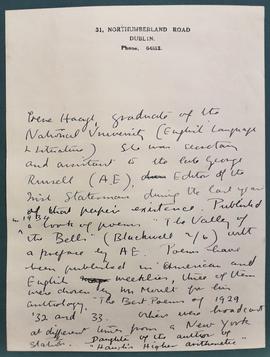 31, NORTHUMBERLAND ROAD
DUBLIN.
Phone,
Irene Haugh, graduate of the
National University (English Language
& Literature) She was secretary
and assistant to the late George
Russell (A.E), Editor of the
Irish Statesman during the last year
of that paper's existence. Published
in 1934 a book of poems "The Valley of
the Bells" (Blackwell 2/6) with
a preface by A E. Poems have
been published in American and
English weeklies, three of them
were chosen by for his
anthology "The Best Poems of 1929
'32 and '33. Others were broadcast
at different times from a New York
Station. Daughter of the author of
"Haugh's Higher Arithmetic"